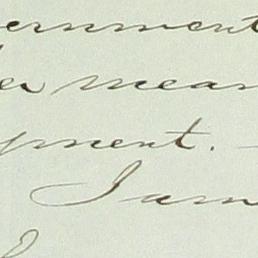 ernment
er mean
yment. -
I am